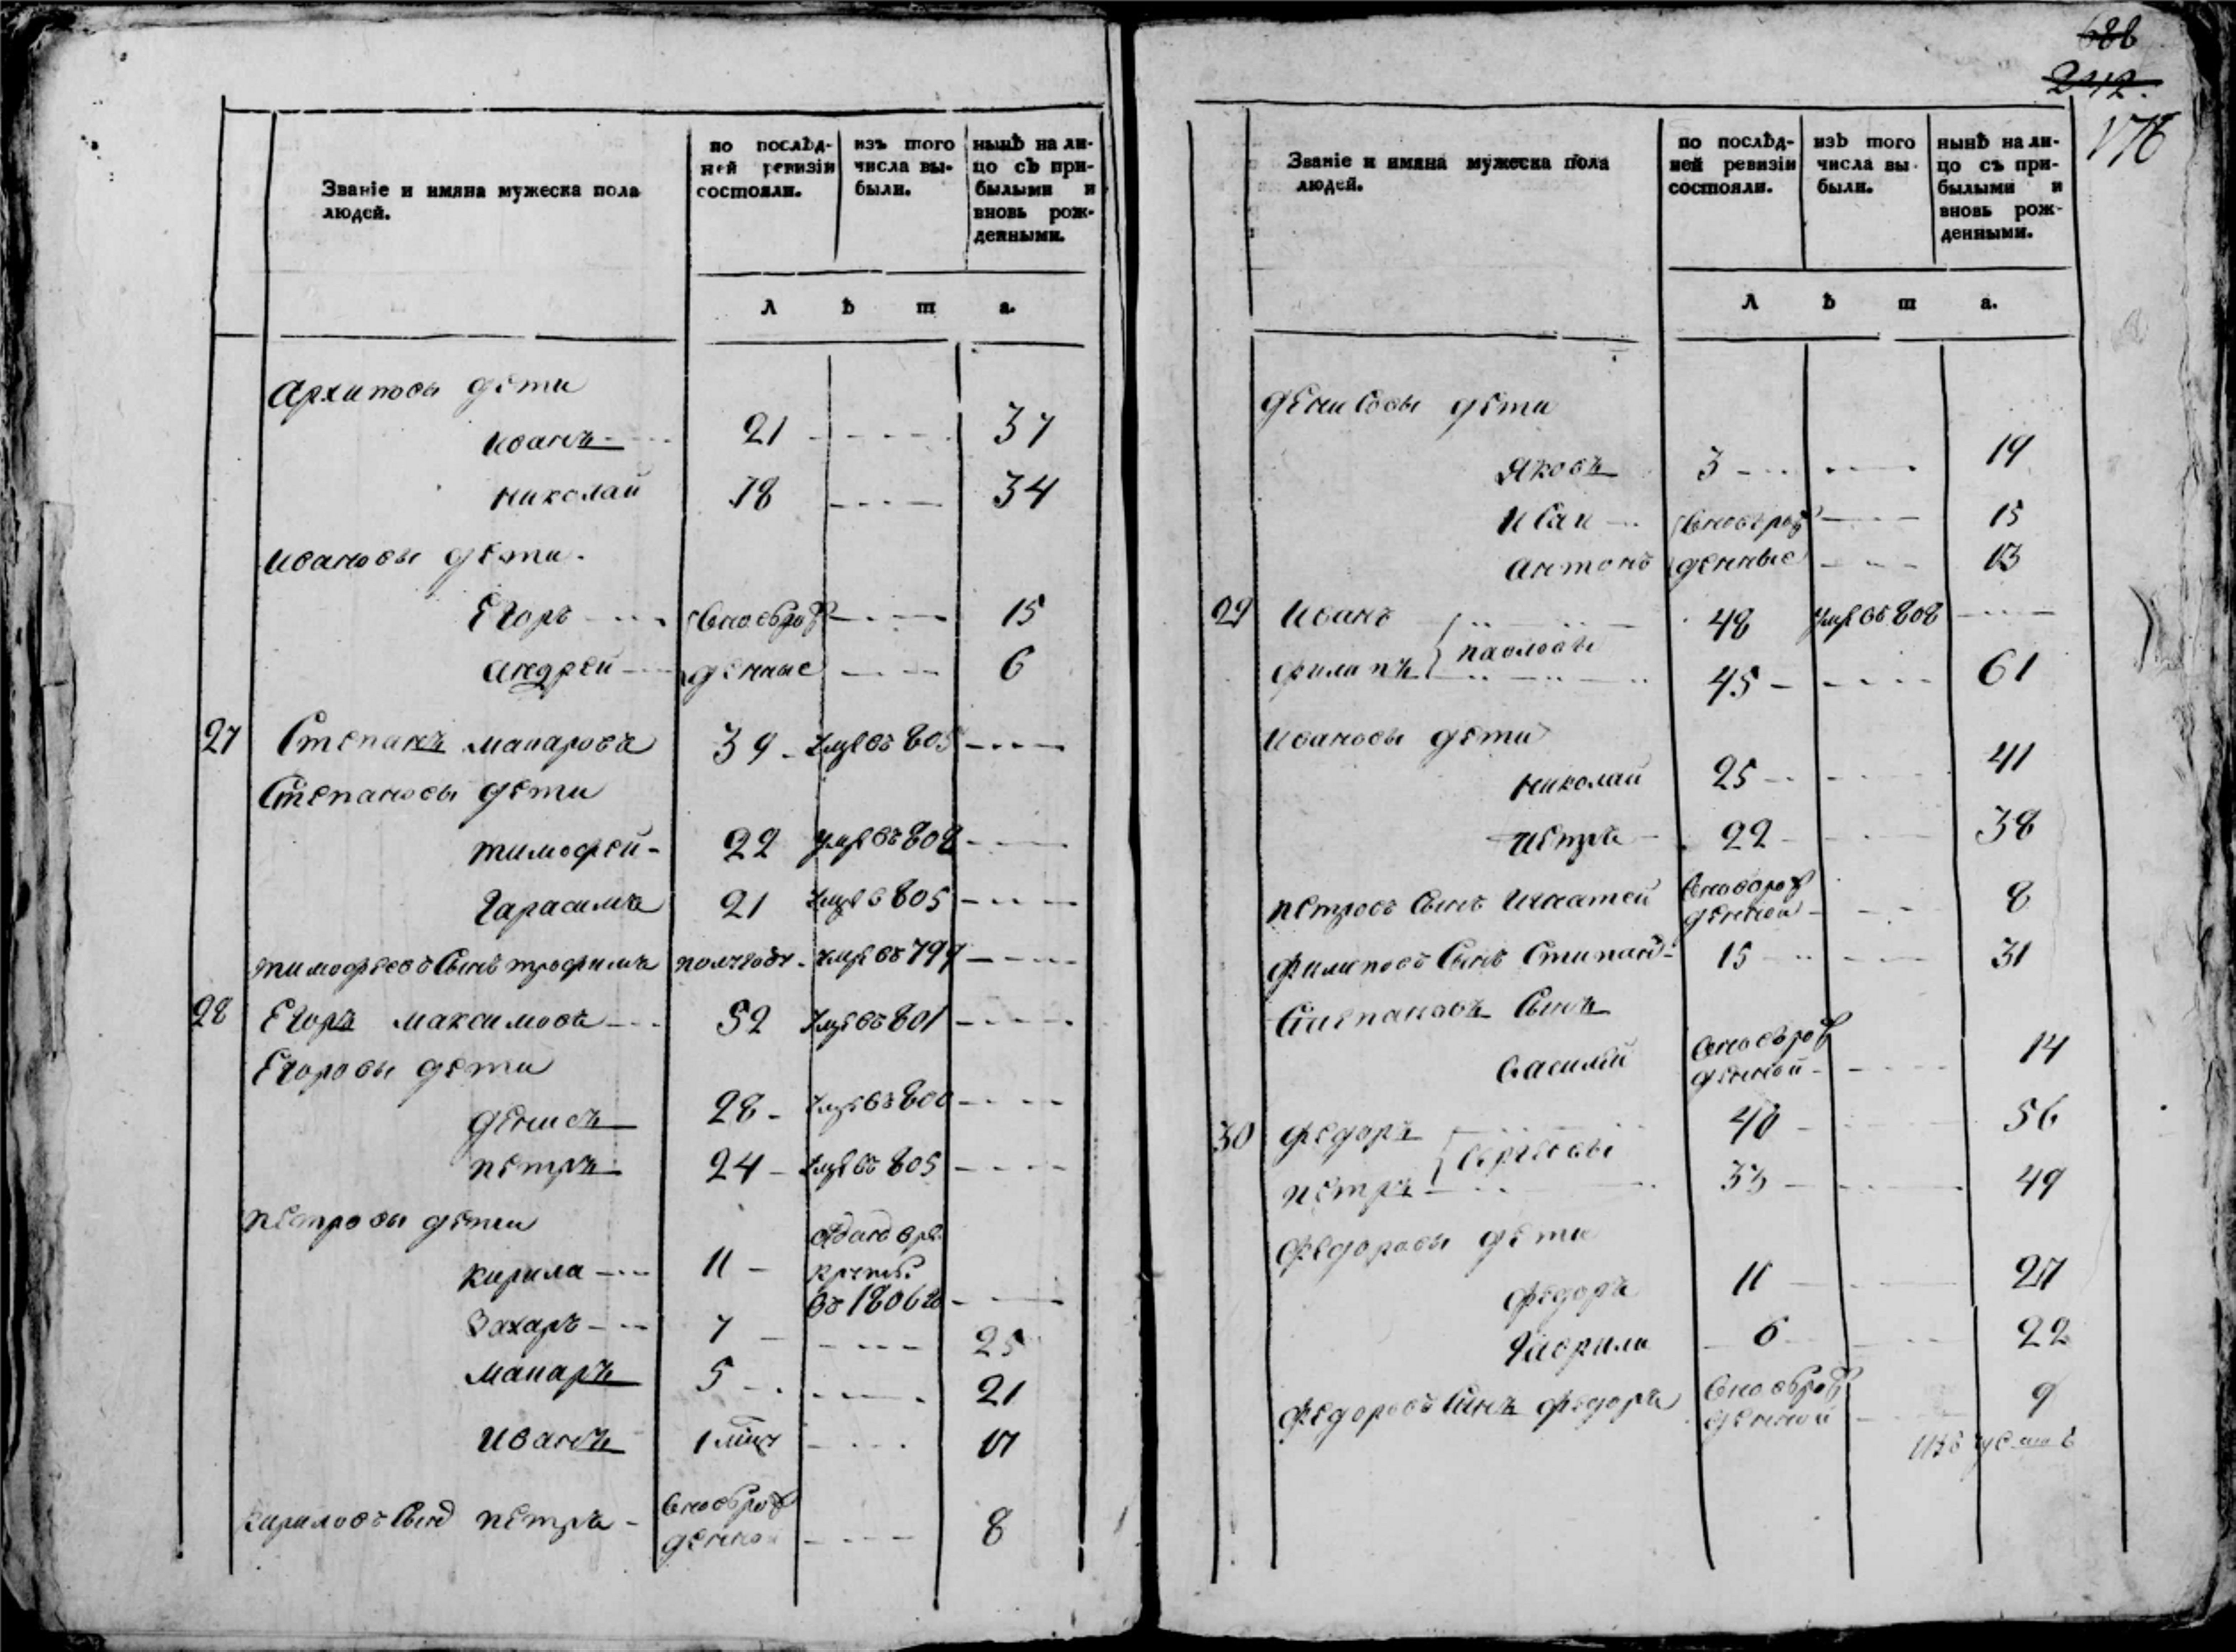 Званіе и имяна мужеска пола
людей.
по послѣд-
ней ревизіи
состояли.
изъ того
числа вы-
были.
нынѣ на ли-
цо съ при-
былыми и
вновь рож-
денными.
л ѣ т а.
Архиповы дети
Иванъ 21 37
Николай 18 34
Ивановы дети
Егоръ вновърож 15
Андрей денные 6
27 Степанъ Макаровъ 39 умре въ 805
Степановы дети
Тимофей 22 умре въ 808
Гарасимъ 21 умре в 805
Тимофеевъ сынъ Трофимъ полугоду умре въ 799
28 Егоръ Максимовъ 52 умре въ 801
Егоровы дети
Денисъ 28 умре въ 800
Петръ 24 умре въ 805
Петровы дети
Кирила 11
въ рекруты
въ 1806
Захаръ 7 25
Макаръ 5 21
Иванъ 1 17
Кириловъ сынъ Петръ вновърож
денной 8
688
242.
176
Званіе и имяна мужеска пола
людей.
по послѣд-
ней ревизіи
состояли.
изъ того
числа вы-
были.
нынѣ на ли-
цо съ при-
былыми и
вновь рож-
денными.
л ѣ т а.
Денисовы дети
Яковъ 3 19
Исаи вновърож 15
Антонъ денные 13
29 Иванъ 48 умре въ 808
Павловы
Филипъ 45 61
Ивановы дети
Николай 25 41
Петръ 22 38
Петровъ сынъ Игнатей вновърож
денной 8
Филиповъ сынъ Стипанъ 15 31
Степановъ сынъ
Василий вновърож
денной 14
30 Федоръ 40 56
Сергеевы
Петръ 33 49
Федоровы дети
Федоръ 11 27
Гаврила 6 22
Федоровъ сынъ Федоръ вновърож
денной 9